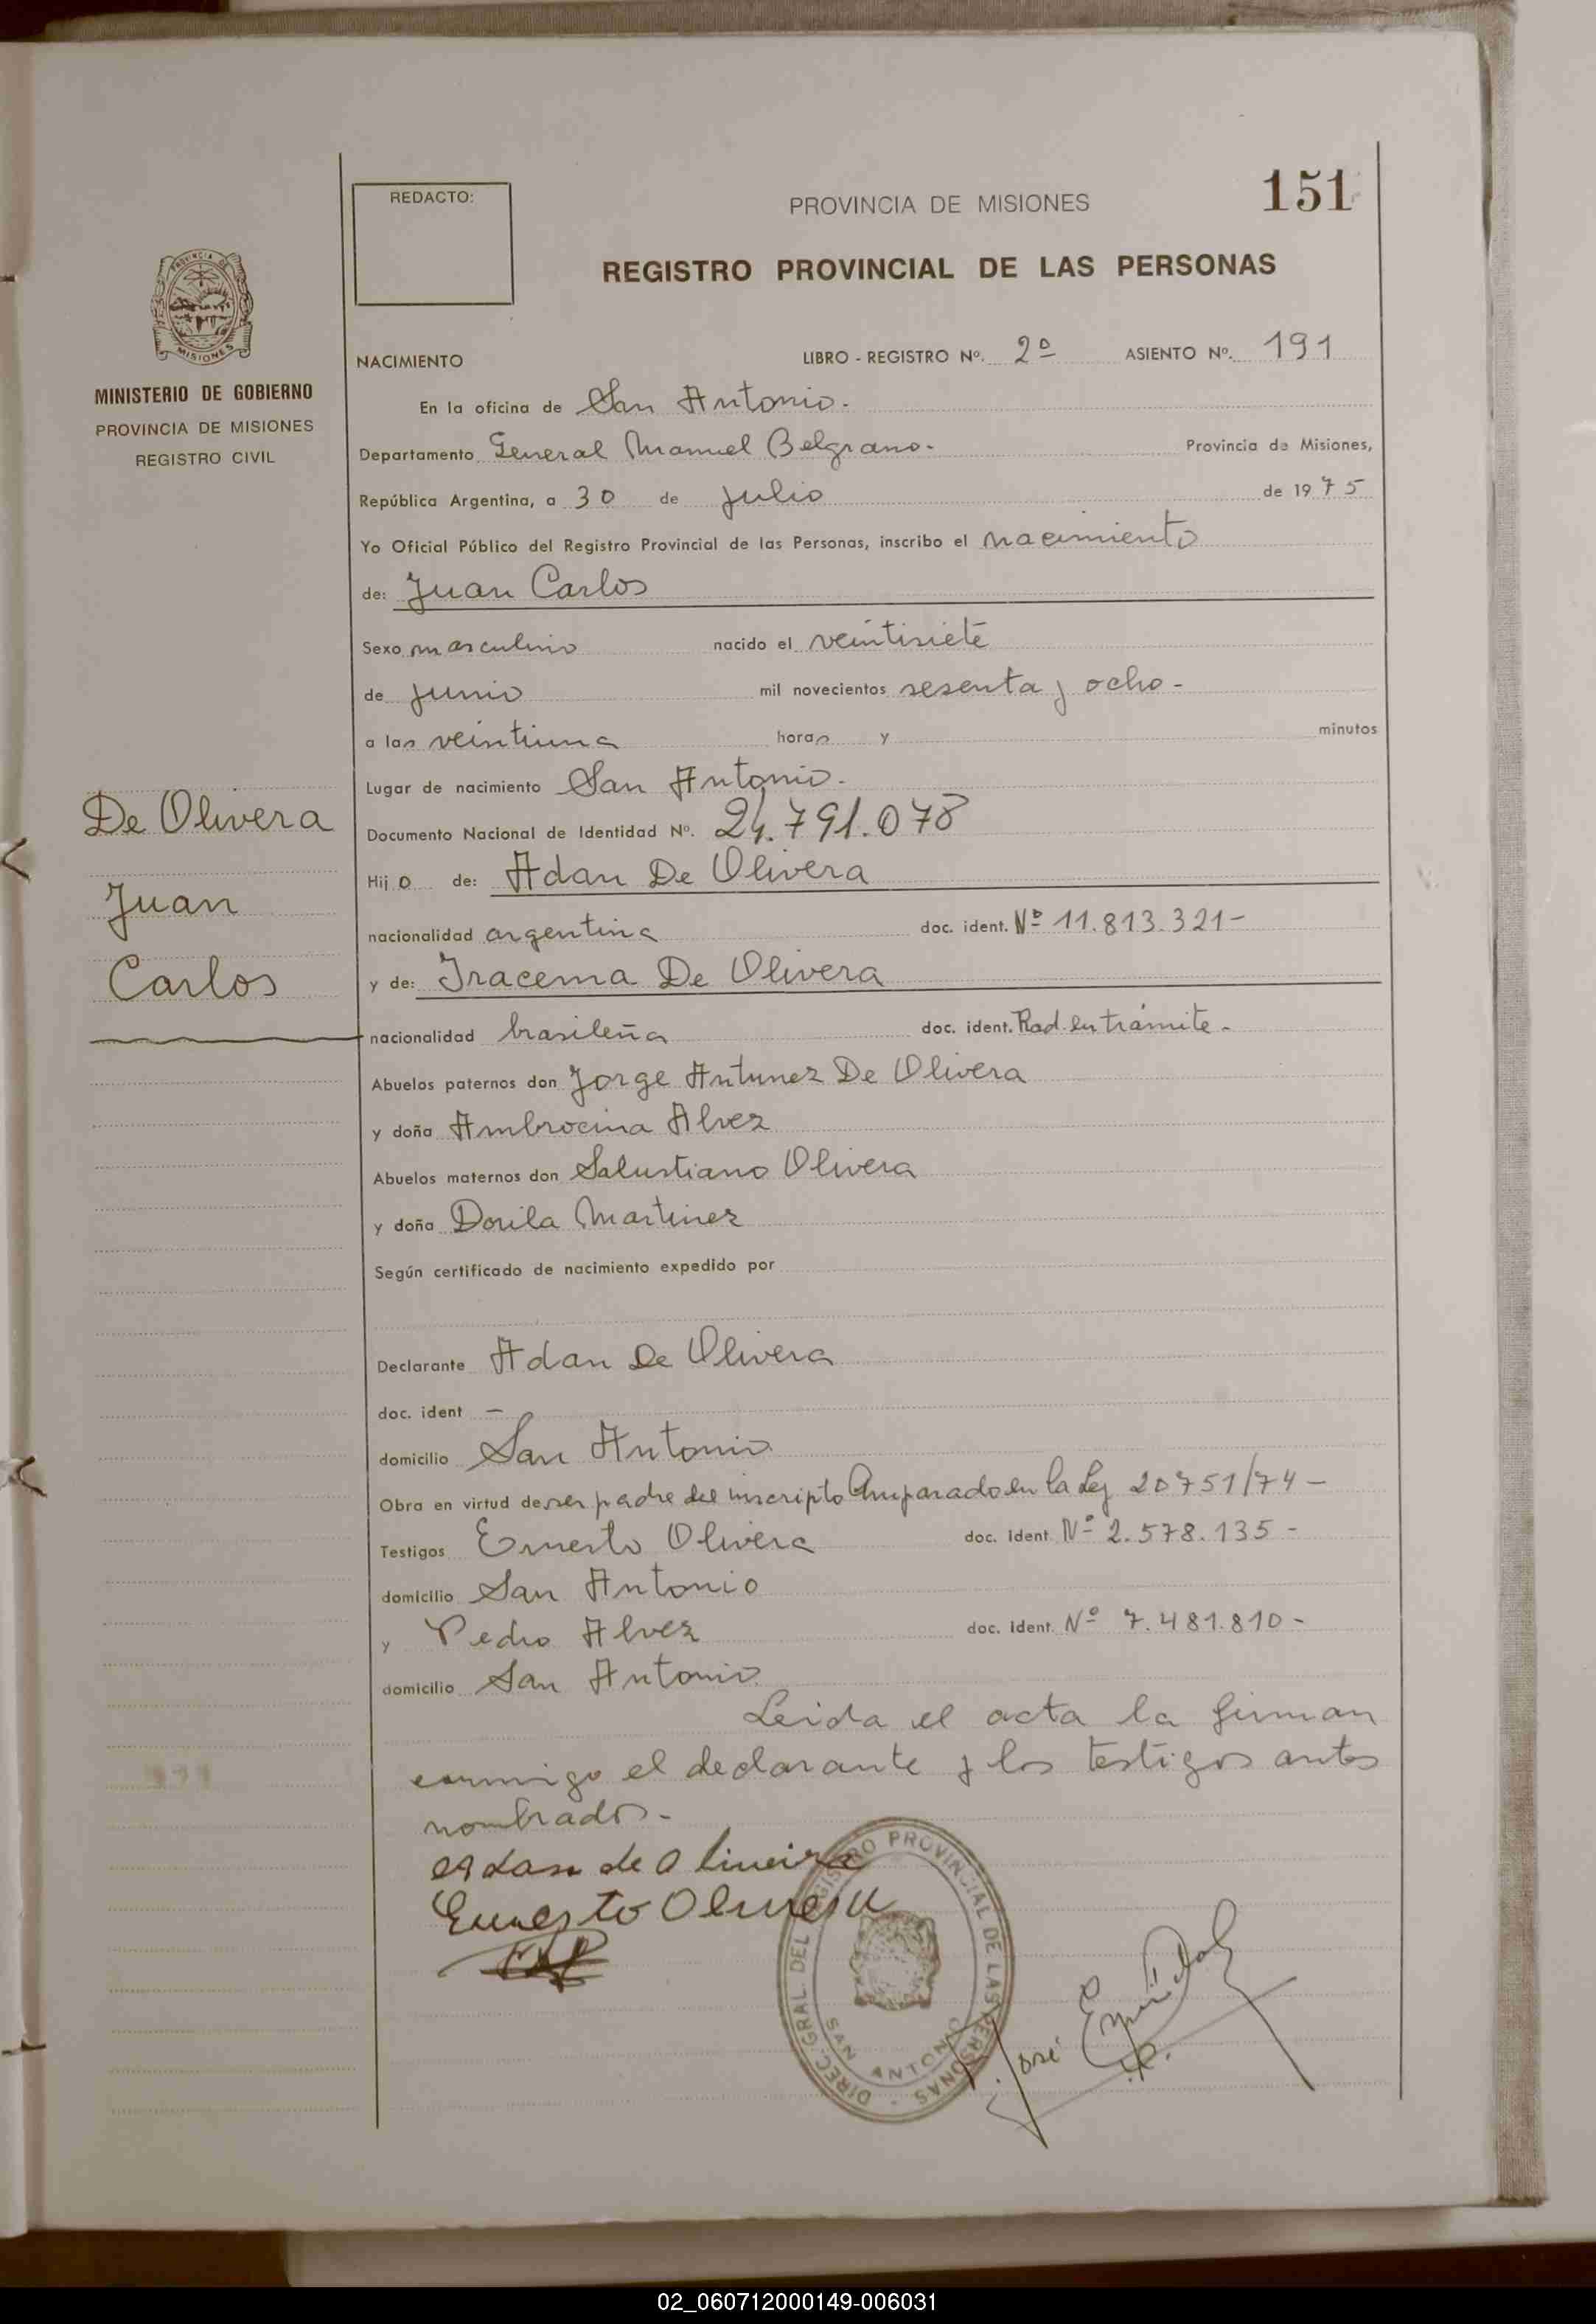 REDACTO:
PROVINCIA DE MISIONES
151
REGISTRO PROVINCIAL DE LAS PERSONAS
PROVINCIA DE
MISIONES
MINISTERIO DE GOBIERNO
PROVINCIA DE MISIONES
REGISTRO CIVIL
NACIMIENTO LIBRO - REGISTRO Nº. 2º ASIENTO Nº. 191
En la oficina de San Antonio.
Departamento General Manuel Belgrano. Provincia de Misiones,
República Argentina, a 30 de julio de 1975
Yo Oficial Público del Registro Provincial de las Personas, inscribo el nacimiento
de: Juan Carlos
Sexo masculino nacido el veintisiete
de junio mil novecientos sesenta y ocho-
a las veintiuna horas y minutos
Lugar de nacimiento San Antonio.
Documento Nacional de Identidad Nº. 24.791.078
Hijo de: Adan De Olivera
nacionalidad argentina doc. ident. Nº 11.813.321-
y de: Iracema De Olivera
nacionalidad brasileña doc. ident. Rad. en trámite.
De Olivera
Juan
Carlos
Abuelos paternos don Jorge Antunez De Olivera
y doña Ambrocina Alvez
Abuelos maternos don Salustiano Olivera
y doña Dorila Martinez
Según certificado de nacimiento expedido por
Declarante Adan De Olivera
doc. ident -
domicilio San Antonio
Obra en virtud de ser padre del inscripto Amparado en la Ley 20751/74-
Testigos Ernesto Olivera doc. ident. Nº 2.578.135-
domicilio San Antonio
y Pedro Alvez doc. ident. Nº 7.481.810-
domicilio San Antonio
Leida el acta la firman
conmigo el declarante y los testigos antes
nombrados-
adan de oliveira
Ernesto Olivera
DIREC. GRAL. DEL REGISTRO PROVINCIAL DE LAS PERSONAS
SAN ANTONIO
José
02_060712000149-006031